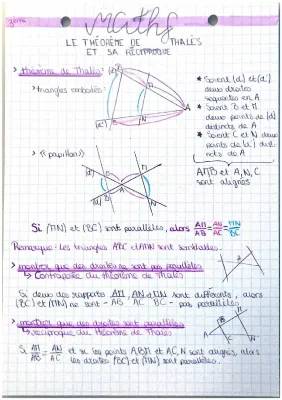 3ème
Maths
LE THÉORÈME DE THALÈS
ET SA RÉCIPROQUE
> théorème de Thalès:
> triangles emboîtés:
(d)
(d')
A
* Soient (d) et (d')
deux droites
sécantes en A
* Soient B et M
deux points de (d)
distincts de A
* Soient C et N deux
points de (d') dis-
tincts de A
A,M,B et A,N,C
sont alignés
A
Si (MN) et (BC) sont parallèles, alors AM/AB = AN/AC = MN/BC
Remarque: Les triangles ABC et AMN sont semblables.
> montrer que des droites ne sont pas parallèles
↳ Contraposée du théorème de Thalès
Si deux des rapports AM/AB, AN/AC et MN/BC sont différents, alors
(BC) et (MN) ne sont pas parallèles
> montrer que des droites sont parallèles
↳ réciproque du théorème de Thalès
Si AM/AB = AN/AC et si les points A,B,M et A,C,N sont alignés, alors
les droites (BC) et (MN) sont parallèles.